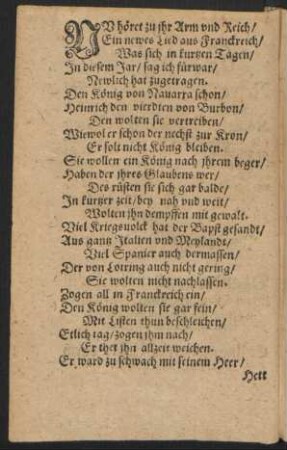 NV höret zu jhr Arm vnd Reich/
Ein newes Lied aus Franckreich/
Was sich in kurtzen Tagen/
In diesem Jar/ sag ich fürwar/
Newlich hat zugetragen.
Den König von Nauarra schon/
Heinrich den vierdten von Burbon/
Den wolten sie vertreiben/
Wiewol er schon der nechst zur Kron/
Er solt nicht König bleiben.
Sie wollen ein König nach jhrem beger/
Haben der jhres Glaubens wer/
Des rüsten sie sich gar balde/
In kurtzer zeit/ bey nah vnd weit/
Wolten jhn dempffen mit gewalt.
Viel Kriegsuolck hat der Bapst gesandt/
Aus gantz Italien vnd Meylandt/
Viel Spanier auch dermassen/
Der von Lotring auch nicht gering/
Sie wolten nicht nachlassen.
Zogen all in Franckreich ein/
Den König wolten sie gar fein/
Mit Listen thun beschleichen/
Etlich tag/ zogen jhm nach/
Er thet jhn allzeit weichen.
Er ward zu schwach mit seinem Heer/
Hett